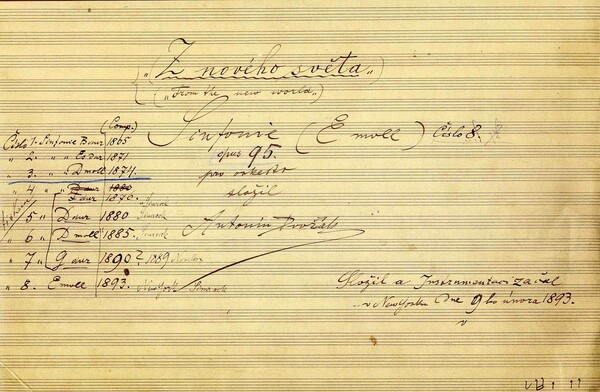 „Z nového světa„
(„From the new world„)
Sinfonie (E moll) Číslo 8.
opus 95.
pro orkestr
složil
Antonín Dvořák
(Comp.)
Číslo 1. Sinfonie B moll 1865
„ 2. „ Es dur 1871
„ 3. „ D moll 1874.
„ 4 „ D dur 1880
F dur 1870.
„ 5 „ D dur 1880 Simrock
„ 6 „ D moll 1885. Simrock
„ 7 „ G dur 1890? 1889 Novello
„ 8. E moll 1893. New York Simrock
Složil a Instrumentaci začal
v New Yorku dne 9ho února 1893.